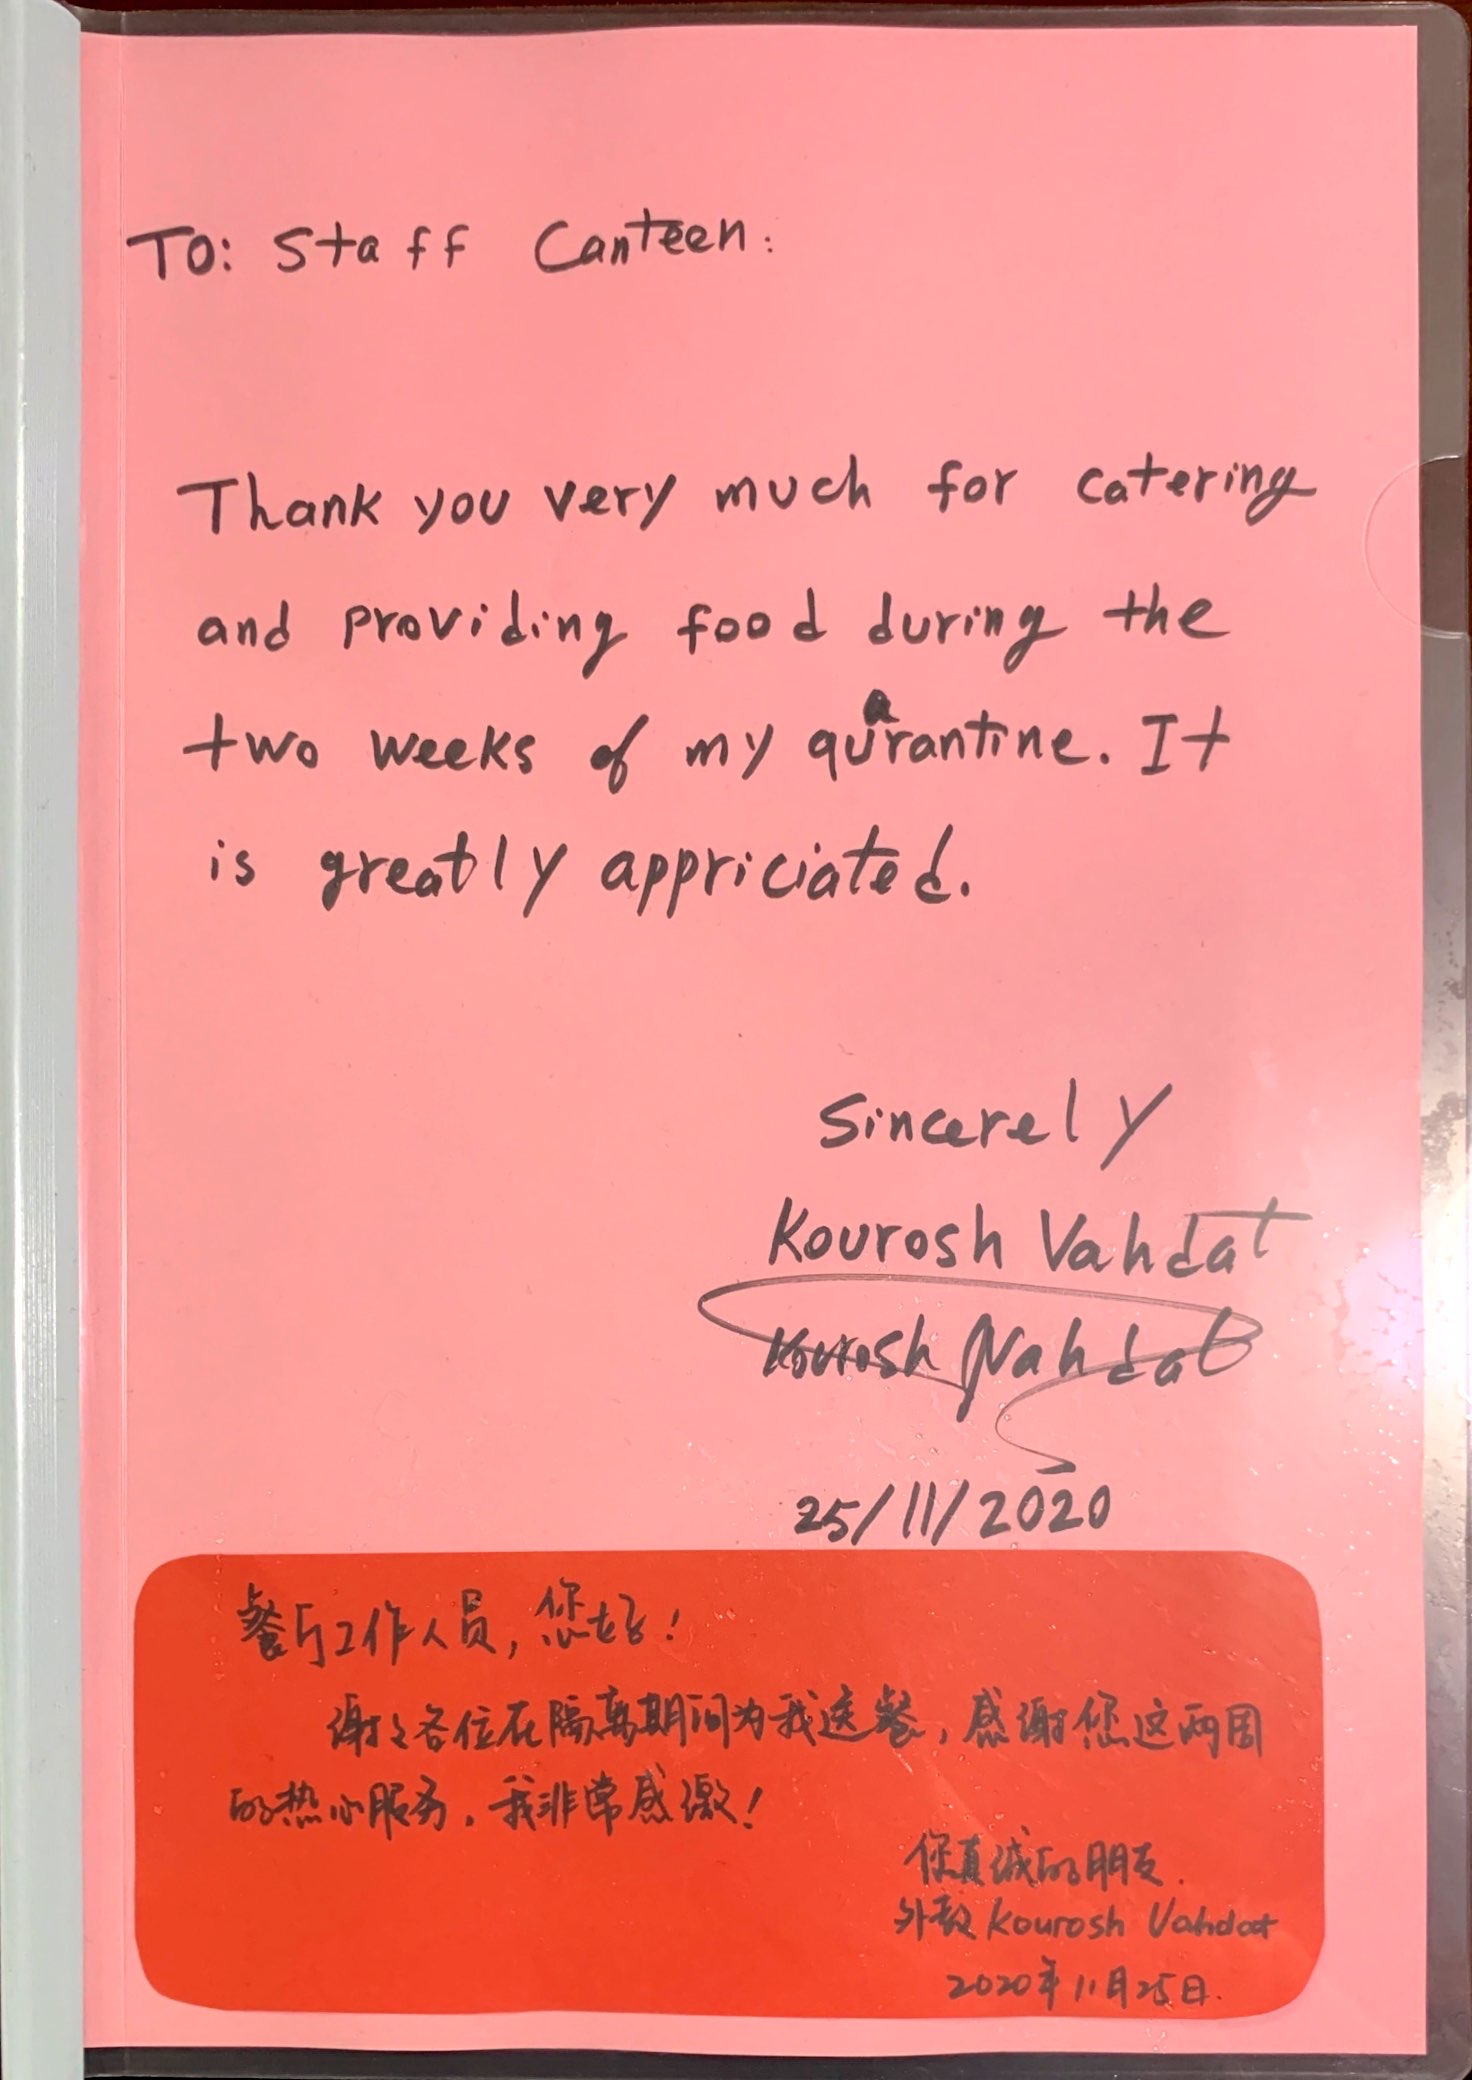 TO: Staff Canteen:
Thank you very much for catering
and providing food during the
two weeks of my quarantine. It
is greatly appriciated.
Sincerely
Kourosh Vahdat
Kourosh Vahdat
25/11/2020
餐厅工作人员，您好！
谢谢各位在隔离期间为我送餐，感谢您这两周
的热心服务，我非常感激！
你真诚的朋友.
外教 Kourosh Vahdat
2020年11月25日.